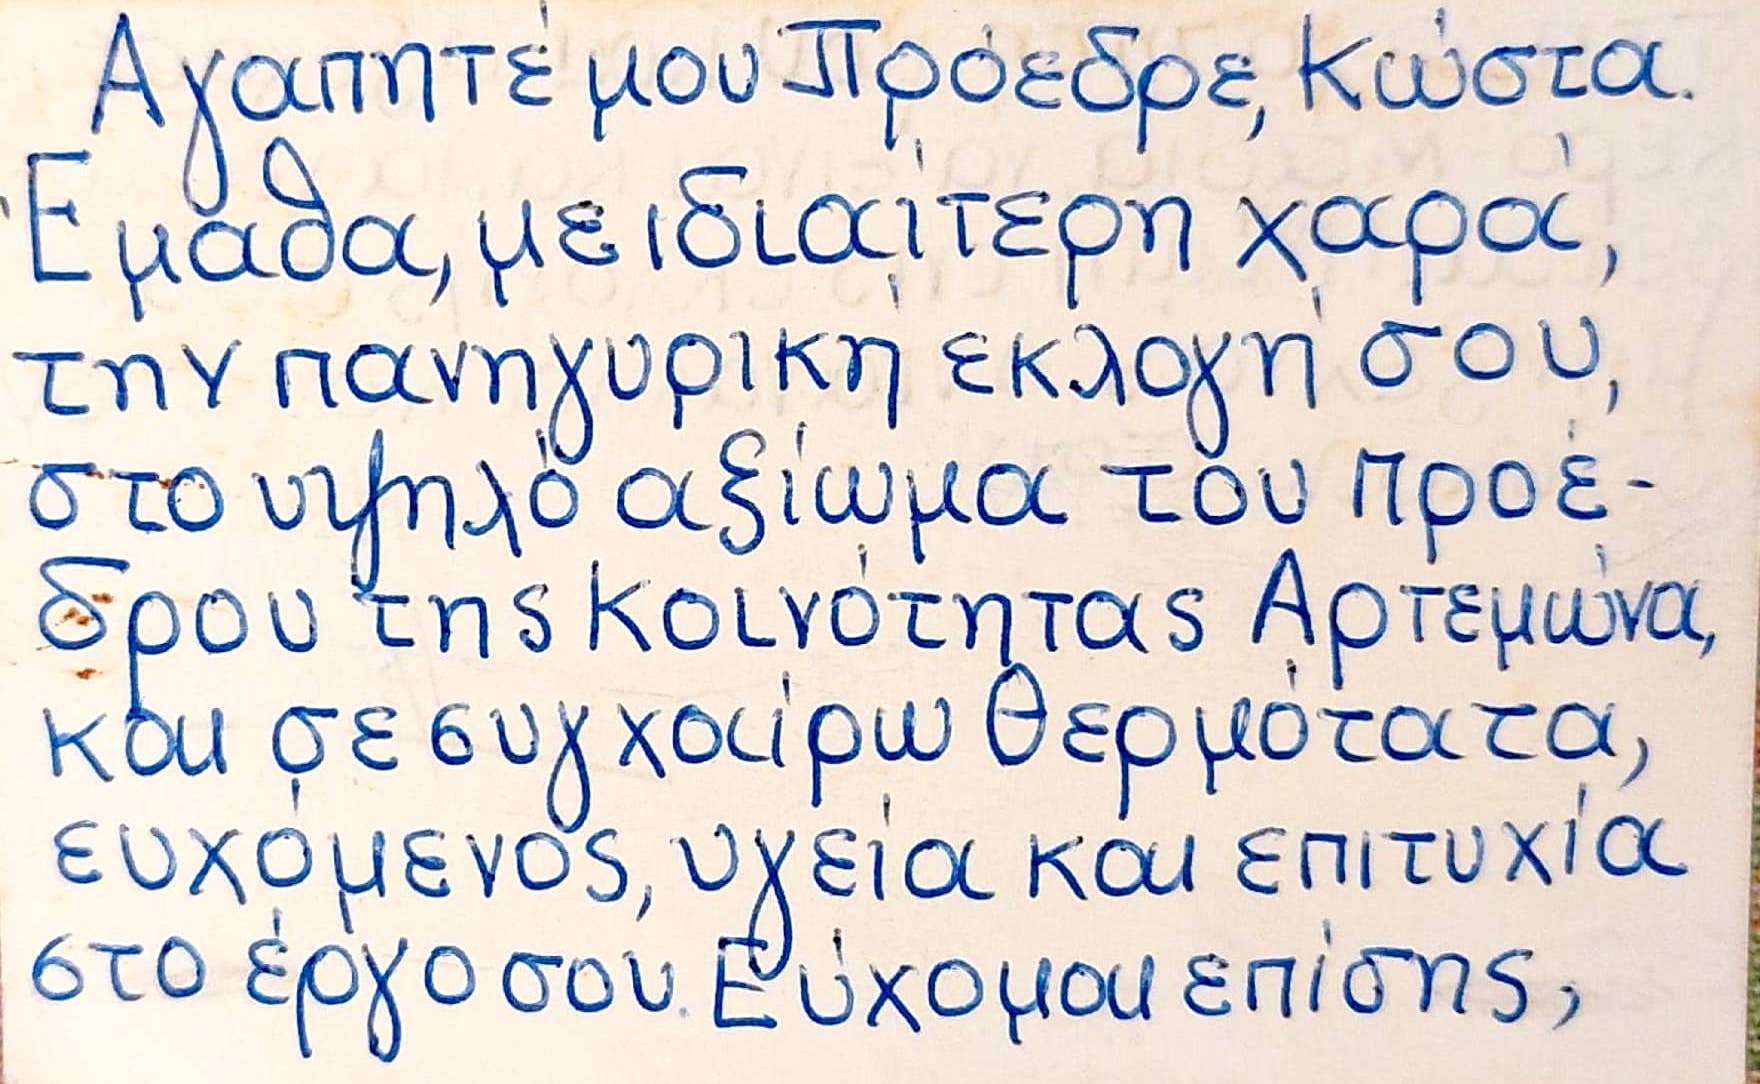 Αγαπητέ μου Πρόεδρε, Κώστα.
Έμαθα, με ιδιαίτερη χαρά,
την πανηγυρική εκλογή σου,
στο υψηλό αξίωμα του προέ-
δρου της Κοινότητας Αρτεμώνα,
και σε συγχαίρω θερμότατα,
ευχόμενος, υγεία και επιτυχία
στο έργο σου. Εύχομαι επίσης,